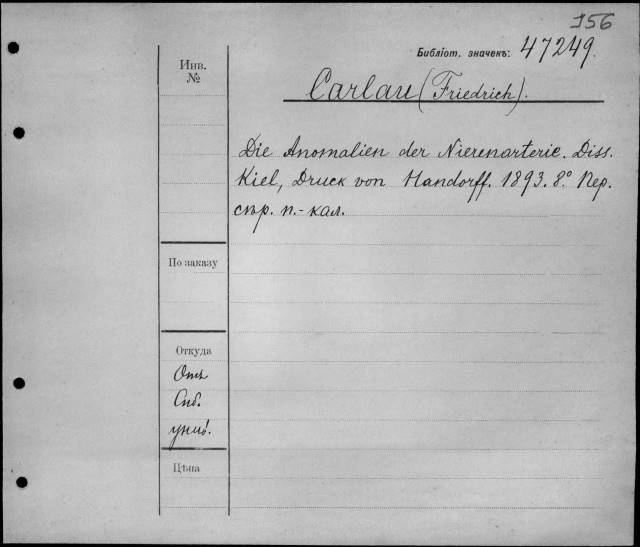 156
Библіот. значекъ: 47249.
Инв.
№
Carlau (Friedrich).
Die Anomalien der Nierenarterie. Diss.
Kiel, Druck von Handorff. 1893. 8.° Пер.
сѣр. п.-кал.
По заказу
Откуда
Отъ
Спб.
унив.
Цѣна